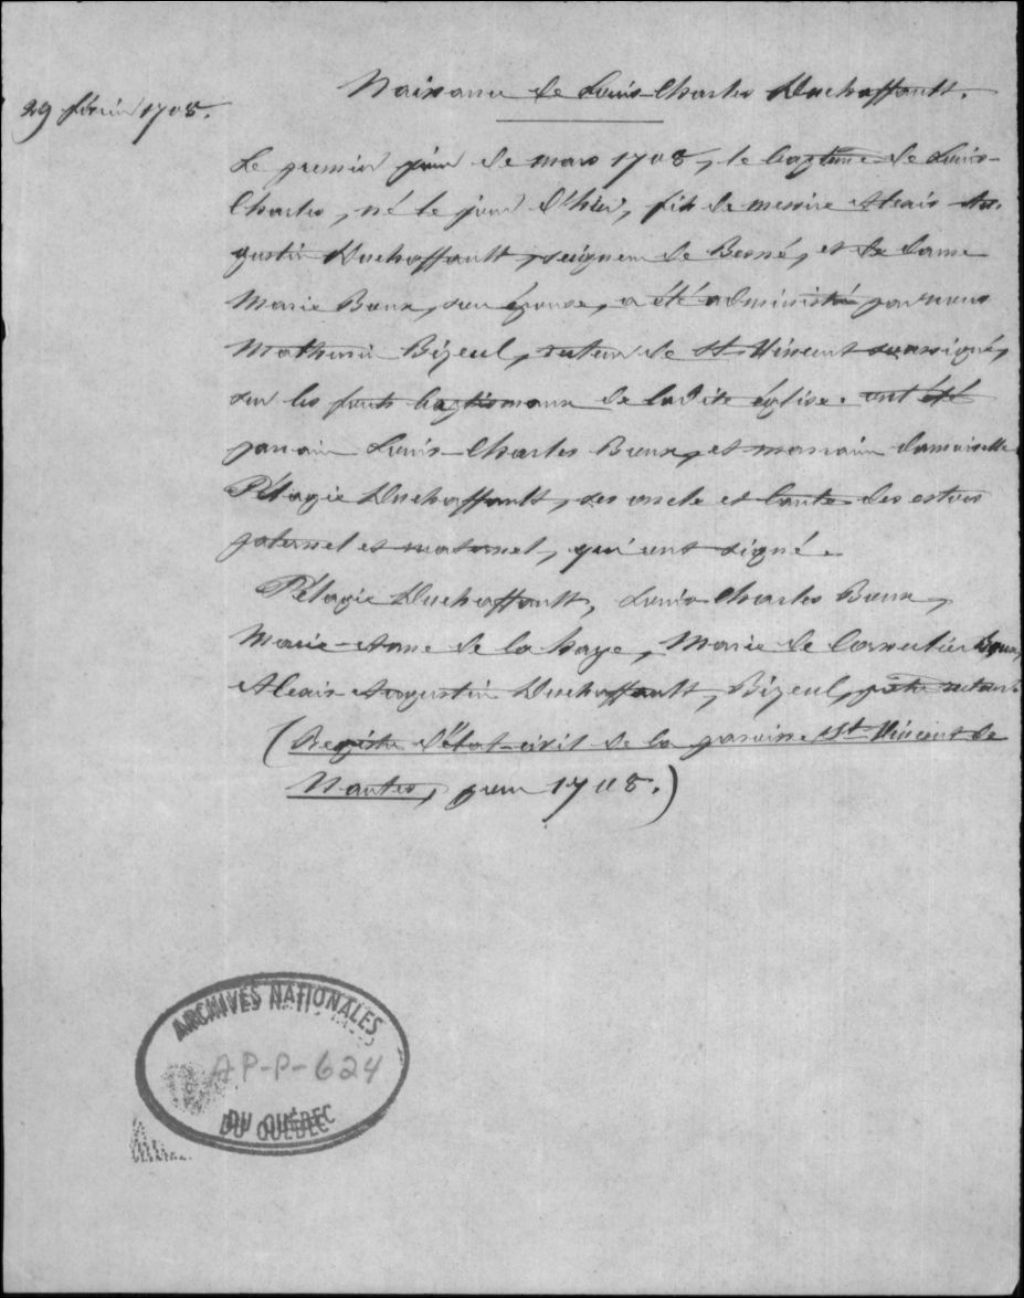 Naissance de Louis-Charles Duchaffault.
29 février 1708.
Le premier jour de mars 1708, le baptême de Louis-
Charles, né le jour d'hier, fils de messire Alexis Au-
gustin Duchaffault, seigneur de Besné, et de dame
Marie Boux, son épouse, a été administré par nous
Mathurin Bizeul, recteur de St Vincent soussigné,
sur les fonts baptismaux de ladite église. ont été
parrain Louis-Charles Boux, et marraine damoiselle
Pélagie Duchaffault, ses oncle et tante des estocs
paternel et maternel, qui ont signé.
Pélagie Duchaffault, Louis Charles Boux,
Marie-Anne de la haye, Marie de Cornulier Boux,
Alexis Augustin Duchaffault, Bizeul, prêtre recteur.
(Registre d'état-civil de la paroisse St Vincent de
Nantes, pour 1708.)
ARCHIVES NATIONALES
AP-P-624
DU QUÉBEC